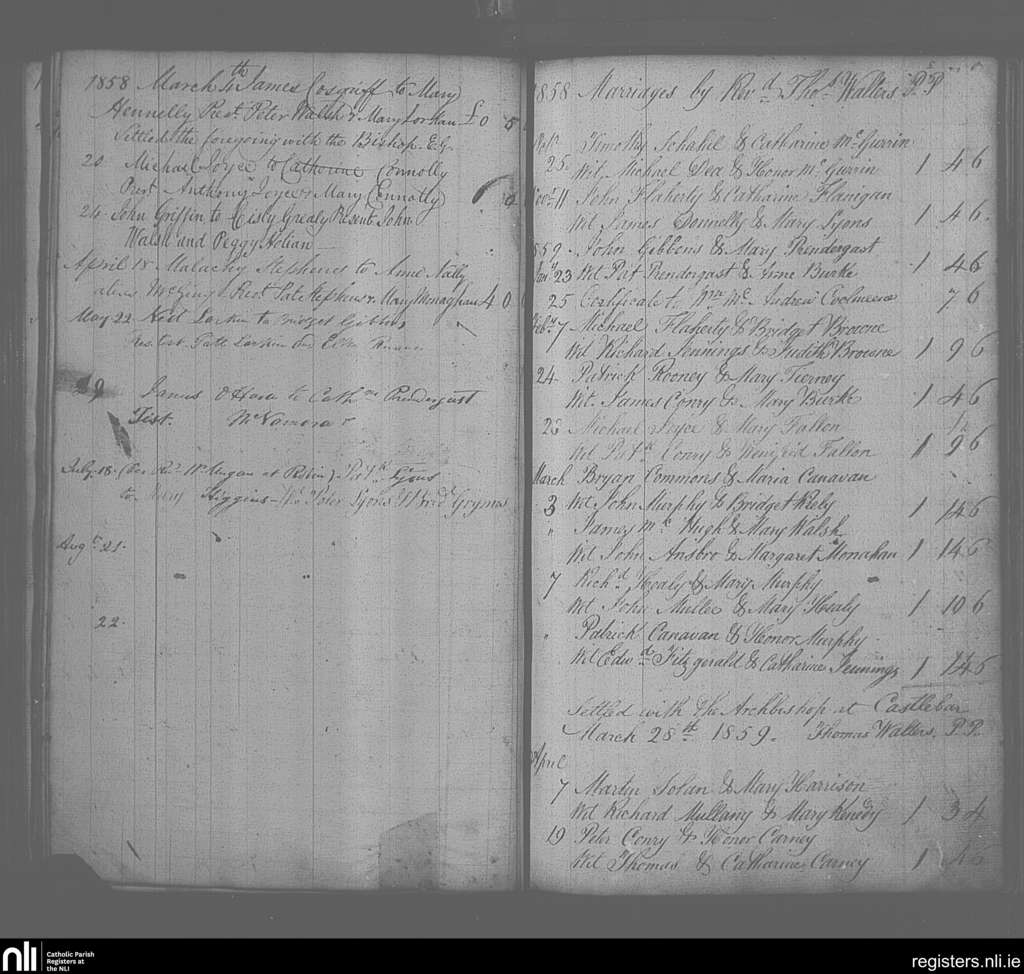 1858 March 4th James Cosgriff to Mary
Hennelly Prest. Peter Walsh & Mary Lorkan £0 5
Settled the foregoing with the Bishop. E.G.
20 Michael Joyce to Catherine Connolly
Prest Anthony Joyce & Mary Connolly
24 John Griffin to Cisly Grealy Present John
Walsh and Peggy Nolian
April 18 Malachy Stephens to Anne Nally
alias McGing Prest Pat Stephens & Mary Monaghan 4 0
May 22 Larkin to Bridget Gibbons
Patt Larkin and
29 James O Hara to Cathne Prendergast
Test. McNamara
July 18. at
to Mary Higgins Peter Lyons
Augst 21.
22.
1858 Marriages by Revd. Thos. Walters P.P
Timothy Schahil & Catharine McGurrin
25. Wit. Michael Dea & Honor McGurrin 1 4 6
Novr. 11 John Flaherty & Catharine Flanigan
Wit James Donnelly & Mary Lyons 1 4 6.
1859 John Gibbons & Mary Prendergast
Jany 23 Wit Pat Prendergast & Anne Burke 1 4 6
25 Certificate to Wm Mc Andrew Coolmeena 7 6
Feby. 7 Michael Flaherty & Bridget Browne
Wit Richard Jennings & Judith Browne 1 9 6
24. Patrick Rooney & Mary Tierney
Wit. James Conry & Mary Burke 1 4 6
Michael Joyce & Mary Fallon
Wit Patk Conry & Winifrid Fallon 1 9 6
March Bryan Commons & Maria Canavan
3 Wit John Murphy & Bridget Kiely 1 14 6
" James Mc Hugh & Mary Walsh
Wit John Ansbro & Margaret Monahan 1 14 6
7 Richd Healy & Mary Murphy
Wit John Mullee & Mary Healy 1 10 6
" Patrick Canavan & Honor Murphy
Wit Edwd Fitzgerald & Catharine Jennings 1 14 6
Settled with the Archbishop at Castlebar
March 28th 1859. Thomas Walters, P.P.
April
7 Martin Solan & Mary Harrison
Wit Richard Mullany & Mary Kenedy 1 3 4
19 Peter Conry & Honor Carney
Wit Thomas & Catharine Carney 1
nli Catholic Parish
Registers at
the NLI
registers.nli.ie